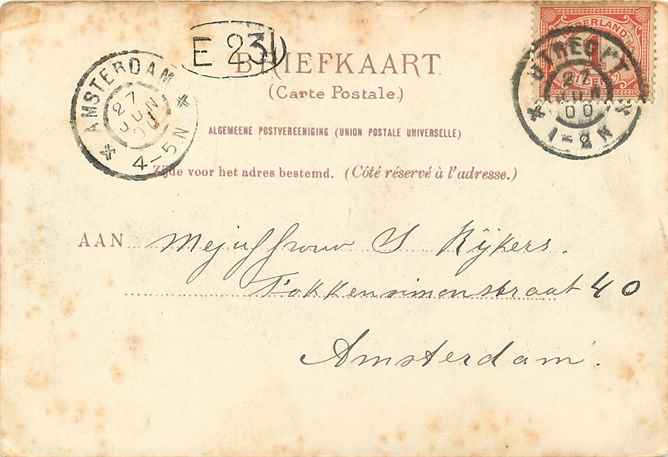 E 23
BRIEFKAART.
(Carte Postale.)
AMSTERDAM
27 JUN 00
4-5 N
NEDERLAND
UTRECHT
27 JUN 00
1-2 N
ALGEMEENE POSTVEREENIGING (UNION POSTALE UNIVERSELLE)
Zijde voor het adres bestemd. (Côté réservé à l'adresse.)
AAN Mejuffrouw S Rijkers.
Fokkensimonstraat 40
Amsterdam.